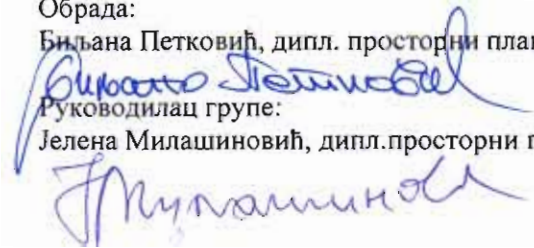 Обрада:
Биљана Петковић, дипл. просторни план
Биљана Петковић
Руководилац групе:
Јелена Милашиновић, дипл.просторни п
Ј Милашиновић